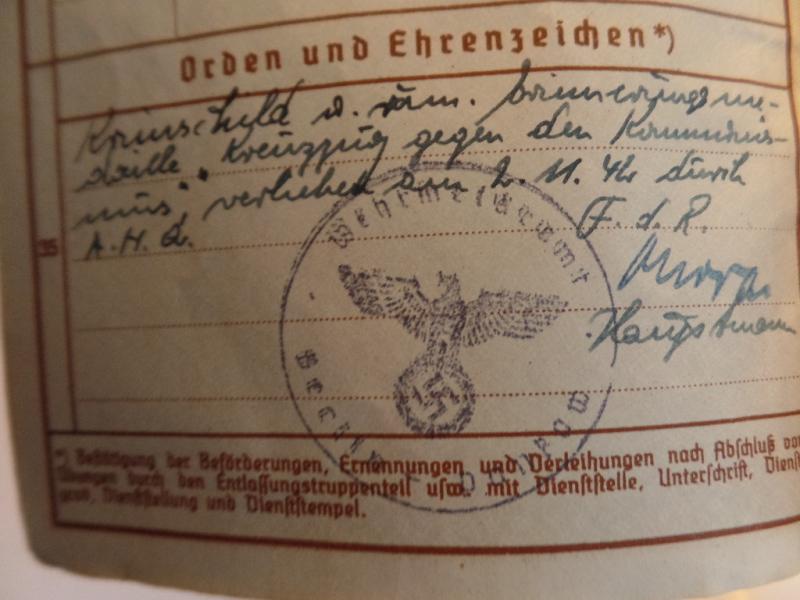 Orden und Ehrenzeichen*)
Krimschild u. rum. Erinnerungsme-
daille "Kreuzzug gegen den Kommunis-
mus", verliehen am 2. 11. 42 durch
A.H.Q. F. d. R.
Hauptmann
35
Wehrmeldeamt
*) Bestätigung der Beförderungen, Ernennungen und Verleihungen nach Abschluß von
Übungen durch den Entlassungstruppenteil usw. mit Dienststelle, Unterschrift, Dienst-
grad, Dienststellung und Dienststempel.